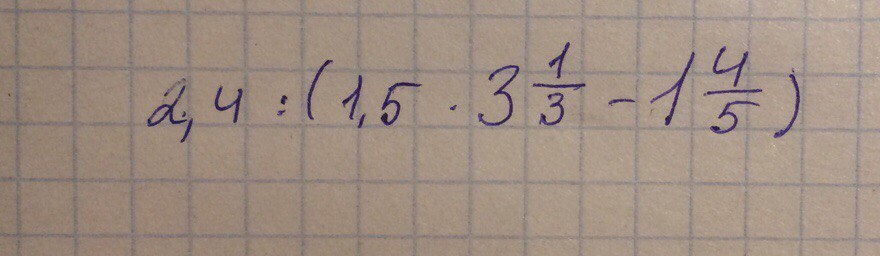 2,4 : (1,5 · 3 1/3 - 1 4/5)